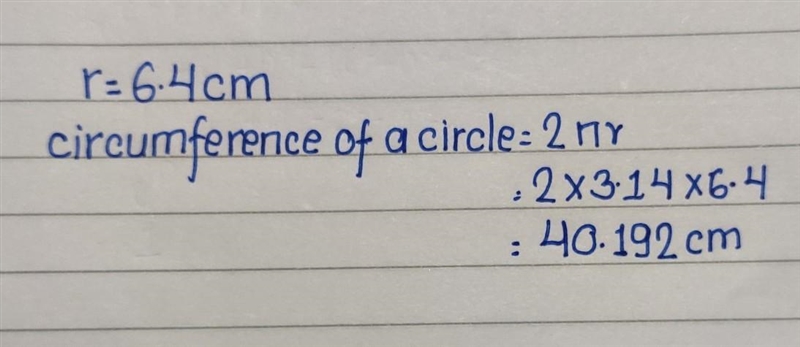 r=6.4cm
circumference of a circle=2πr
=2×3.14×6.4
=40.192cm